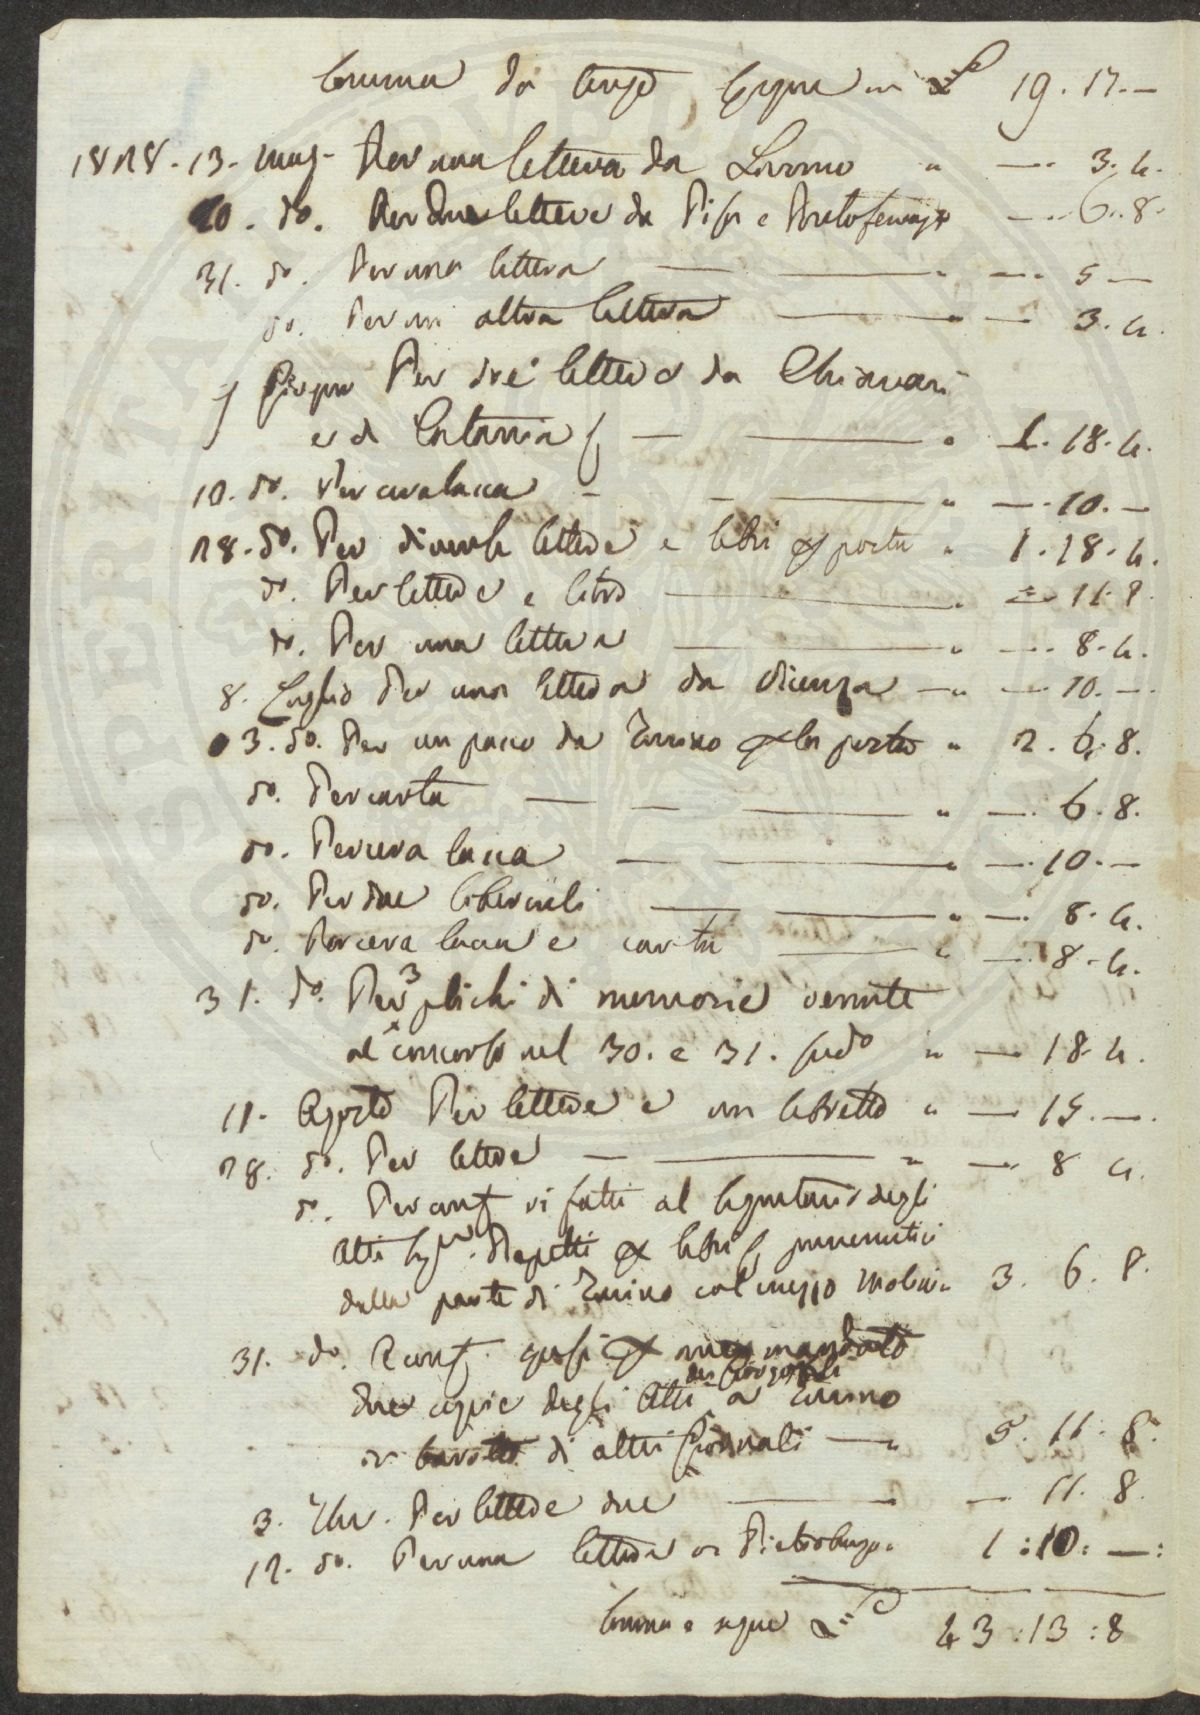 Somma da tergo segue in £ 19. 17. —
1828. 13. Mag. Per una lettera da Livorno " — 3. 4.
20. do. Per due lettere da Pisa e Portoferrajo — 6. 8.
31. do. Per una lettera — " — 5 —
do. Per un altra lettera — " — 3. 4.
Giugno Per tre lettere da Chiavari
e da Catania — " 1. 18. 4.
10. do. Per ceralacca — " — 10. —
28. do. Per diverse lettere e libri porto " 1. 18. 4.
do. Per lettere e libro — " — 11. 8
do. Per una lettera — " — 8. 4.
8. Luglio Per una lettera da Vicenza — " — 10. —
3. do. Per un pacco da Torino porto " 2. 6. 8.
do. Per carta — " — 6. 8.
do. Per cera lacca — " — 10. —
do. Per due — " — 8. 4.
do. Per cera lacca e carta — " — 8. 4.
31. do. Per 3 plichi di memorie venute
al concorso nel 30. e 31. sudo " — 18. 4.
11. Agosto Per lettere e un libretto " — 15. —.
28. do. Per lettere — " — 8 4.
do. Per fatti al Segretario degli
Atti Sigr. Repetti libri
dalla parte di Torino col mezzo Molini 3. 6. 8.
31. do. mandato
dei Georgofili
due copie degli Atti a Torino
di altri Giornali — " 5. 11. 8.
3. 7bre. Per lettere due — " — 11. 8.
12. do. Per una lettera di Pietroburgo. 1 : 10 : — :
Somma e segue £ 43 : 13 : 8